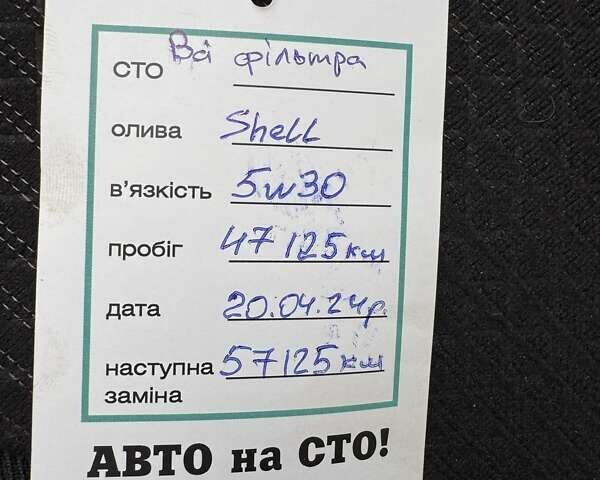 СТО Всі фільтра
олива Shell
в'язкість 5w30
пробіг 47125км
дата 20.04.24р.
наступна 57125км
заміна
АВТО на СТО!